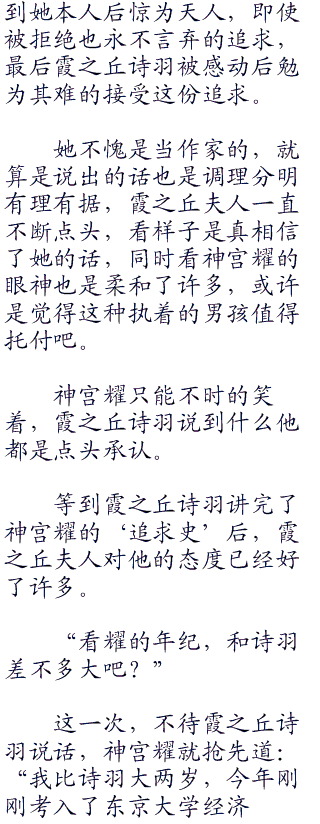 到她本人后惊为天人，即使
被拒绝也永不言弃的追求，
最后霞之丘诗羽被感动后勉
为其难的接受这份追求。
她不愧是当作家的，就
算是说出的话也是调理分明
有理有据，霞之丘夫人一直
不断点头，看样子是真相信
了她的话，同时看神宫耀的
眼神也是柔和了许多，或许
是觉得这种执着的男孩值得
托付吧。
神宫耀只能不时的笑
着，霞之丘诗羽说到什么他
都是点头承认。
等到霞之丘诗羽讲完了
神宫耀的‘追求史’后，霞
之丘夫人对他的态度已经好
了许多。
“看耀的年纪，和诗羽
差不多大吧？”
这一次，不待霞之丘诗
羽说话，神宫耀就抢先道：
“我比诗羽大两岁，今年刚
刚考入了东京大学经济